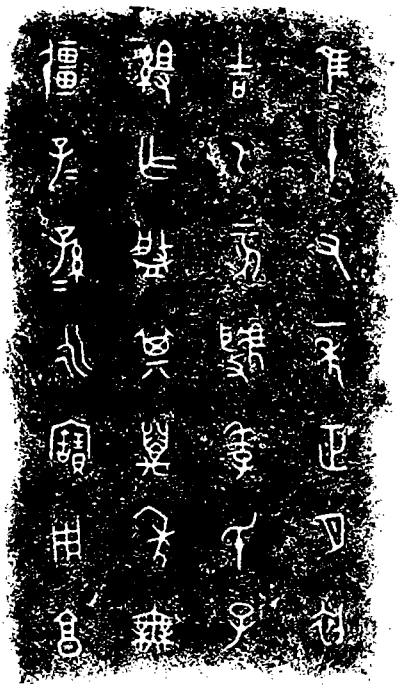 隹十又一年正月初
吉乙亥虢季氏子
組乍盤其萬年無
疆子=孫=永寶用享